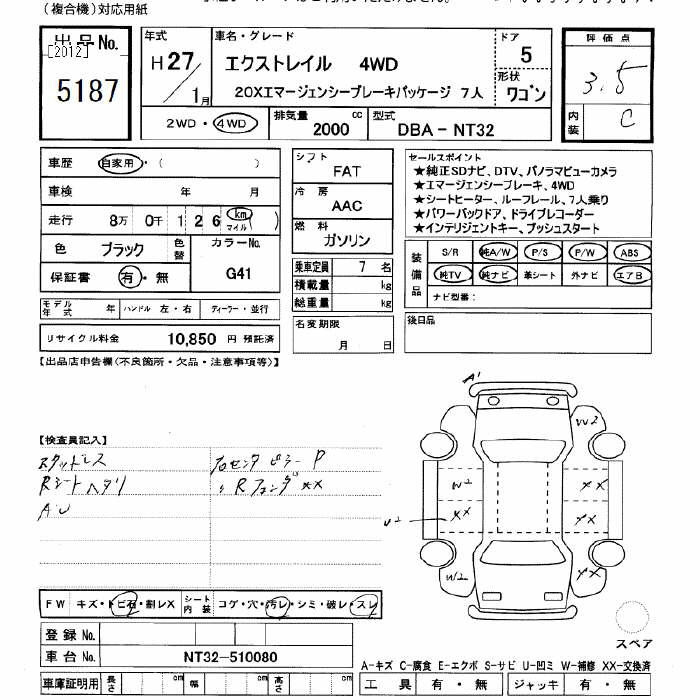 (複合機)対応用紙
出品No.
[2012]
5187
年式
H27/1月
車名・グレード
エクストレイル 4WD
20Xエマージェンシーブレーキパッケージ 7人
ドア
5
形状
ワゴン
評価点
3.5
内装
C
2WD・4WD
排気量
2000 cc
型式
DBA-NT32
車歴 自家用・( )
車検 年 月
走行 8万 0千 1 2 6 km マイル ( )
色 ブラック 色替
カラーNo.
G41
保証書 有・無
モデル年式 年 ハンドル 左・右 ディーラー・並行
リサイクル料金 10,850 円 預託済
シフト
FAT
冷房
AAC
燃料
ガソリン
乗車定員 7 名
積載量 kg
総重量 kg
名変期限
月 日
セールスポイント
★純正SDナビ、DTV、パノラマビューカメラ
★エマージェンシーブレーキ、4WD
★シートヒーター、ルーフレール、7人乗り
★パワーバックドア、ドライブレコーダー
★インテリジェントキー、プッシュスタート
装備品
S/R 純A/W P/S P/W ABS
純TV 純ナビ 革シート 外ナビ エアB
ナビ型番:
後日品
【出品店申告欄(不良箇所・欠品・注意事項等)】
【検査員記入】
スタッドレス
Rシートヘタリ
AU
右センターピラー P
〃 Rフェンダ XX
A1
W2
W2
XX
U2
XX
XX
W2
XX
スペア
FW キズ・トビ石・割レX
シート内装 コゲ・穴・汚レ・シミ・破レ・スレ
登録No.
車台No. NT32-510080
車庫証明用 長さ cm 幅 cm 高さ cm
A-キズ C-腐食 E-エクボ S-サビ U-凹ミ W-補修 XX-交換済
工具 有・無 ジャッキ 有・無